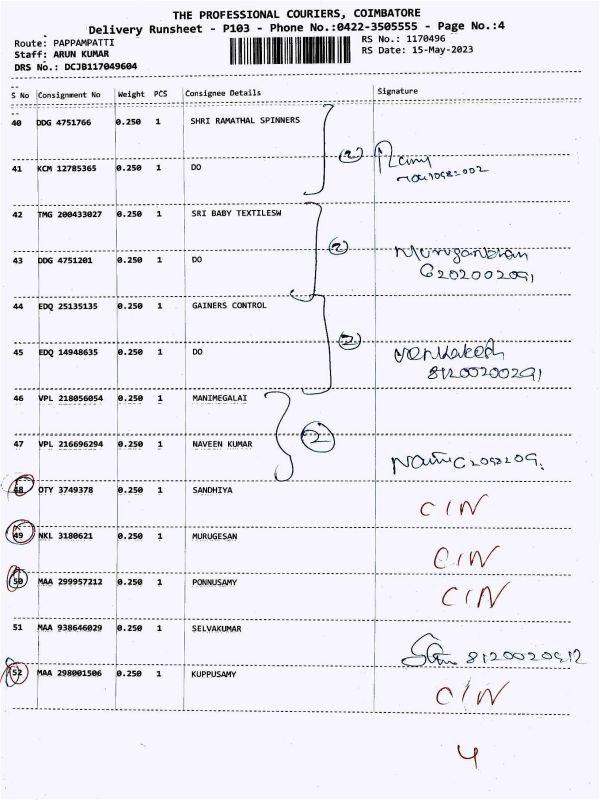 THE PROFESSIONAL COURIERS, COIMBATORE
Delivery Runsheet - P103 - Phone No.:0422-3505555 - Page No.:4
Route: PAPPAMPATTI
Staff: ARUN KUMAR
DRS No.: DCJB117049604
RS No.: 1170496
RS Date: 15-May-2023
S No Consignment No Weight PCS Consignee Details Signature
40 DDG 4751766 0.250 1 SHRI RAMATHAL SPINNERS
2
41 KCM 12785365 0.250 1 DO
42 TMG 200433027 0.250 1 SRI BABY TEXTILESW
2
43 DDG 4751201 0.250 1 DO
44 EDQ 25135135 0.250 1 GAINERS CONTROL
2
45 EDQ 14948635 0.250 1 DO
8120020291
46 VPL 218056054 0.250 1 MANIMEGALAI
2
47 VPL 216696294 0.250 1 NAVEEN KUMAR
48 OTY 3749378 0.250 1 SANDHIYA C/N
49 NKL 3180621 0.250 1 MURUGESAN C/N
50 MAA 299957212 0.250 1 PONNUSAMY C/N
51 MAA 938646029 0.250 1 SELVAKUMAR
52 MAA 298001506 0.250 1 KUPPUSAMY C/N
4